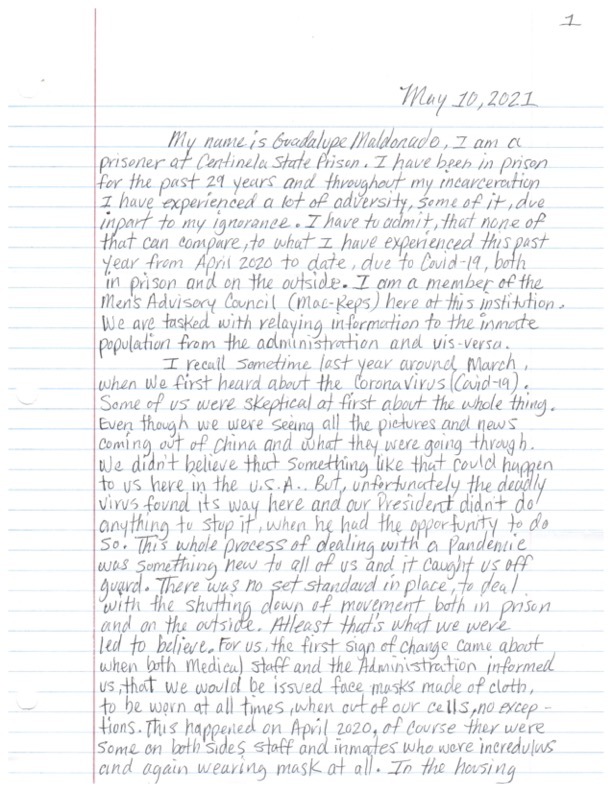 1
May 10, 2021
My name is Guadalupe Maldonado, I am a
prisoner at Centinela State Prison. I have been in prison
for the past 29 years and throughout my incarceration
I have experienced a lot of adversity, some of it, due
inpart to my ignorance. I have to admit, that none of
that can compare, to what I have experienced this past
year from April 2020 to date, due to Covid-19, both
in prison and on the outside. I am a member of the
Men's Advisory Council (Mac-Reps) here at this institution.
We are tasked with relaying information to the inmate
population from the administration and vis-versa.
I recall sometime last year around March,
when we first heard about the Coronavirus (Covid-19).
Some of us were skeptical at first about the whole thing.
Even though we were seeing all the pictures and news
coming out of China and what they were going through.
We didn't believe that something like that could happen
to us here in the U.S.A.. But, unfortunately the deadly
virus found its way here and our President didn't do
anything to stop it, when he had the opportunity to do
so. This whole process of dealing with a Pandemic
was something new to all of us and it caught us off
guard. There was no set standard in place, to deal
with the shutting down of movement, both in prison
and on the outside. Atleast that's what we were
led to believe. For us, the first sign of change came about
when both Medical staff and the Administration informed
us, that we would be issued face masks made of cloth,
to be worn at all times, when out of our cells, no excep-
tions. This happened on April 2020, of course ther were
some on both sides staff and inmates who were incredulus
and again wearing mask at all. In the housing